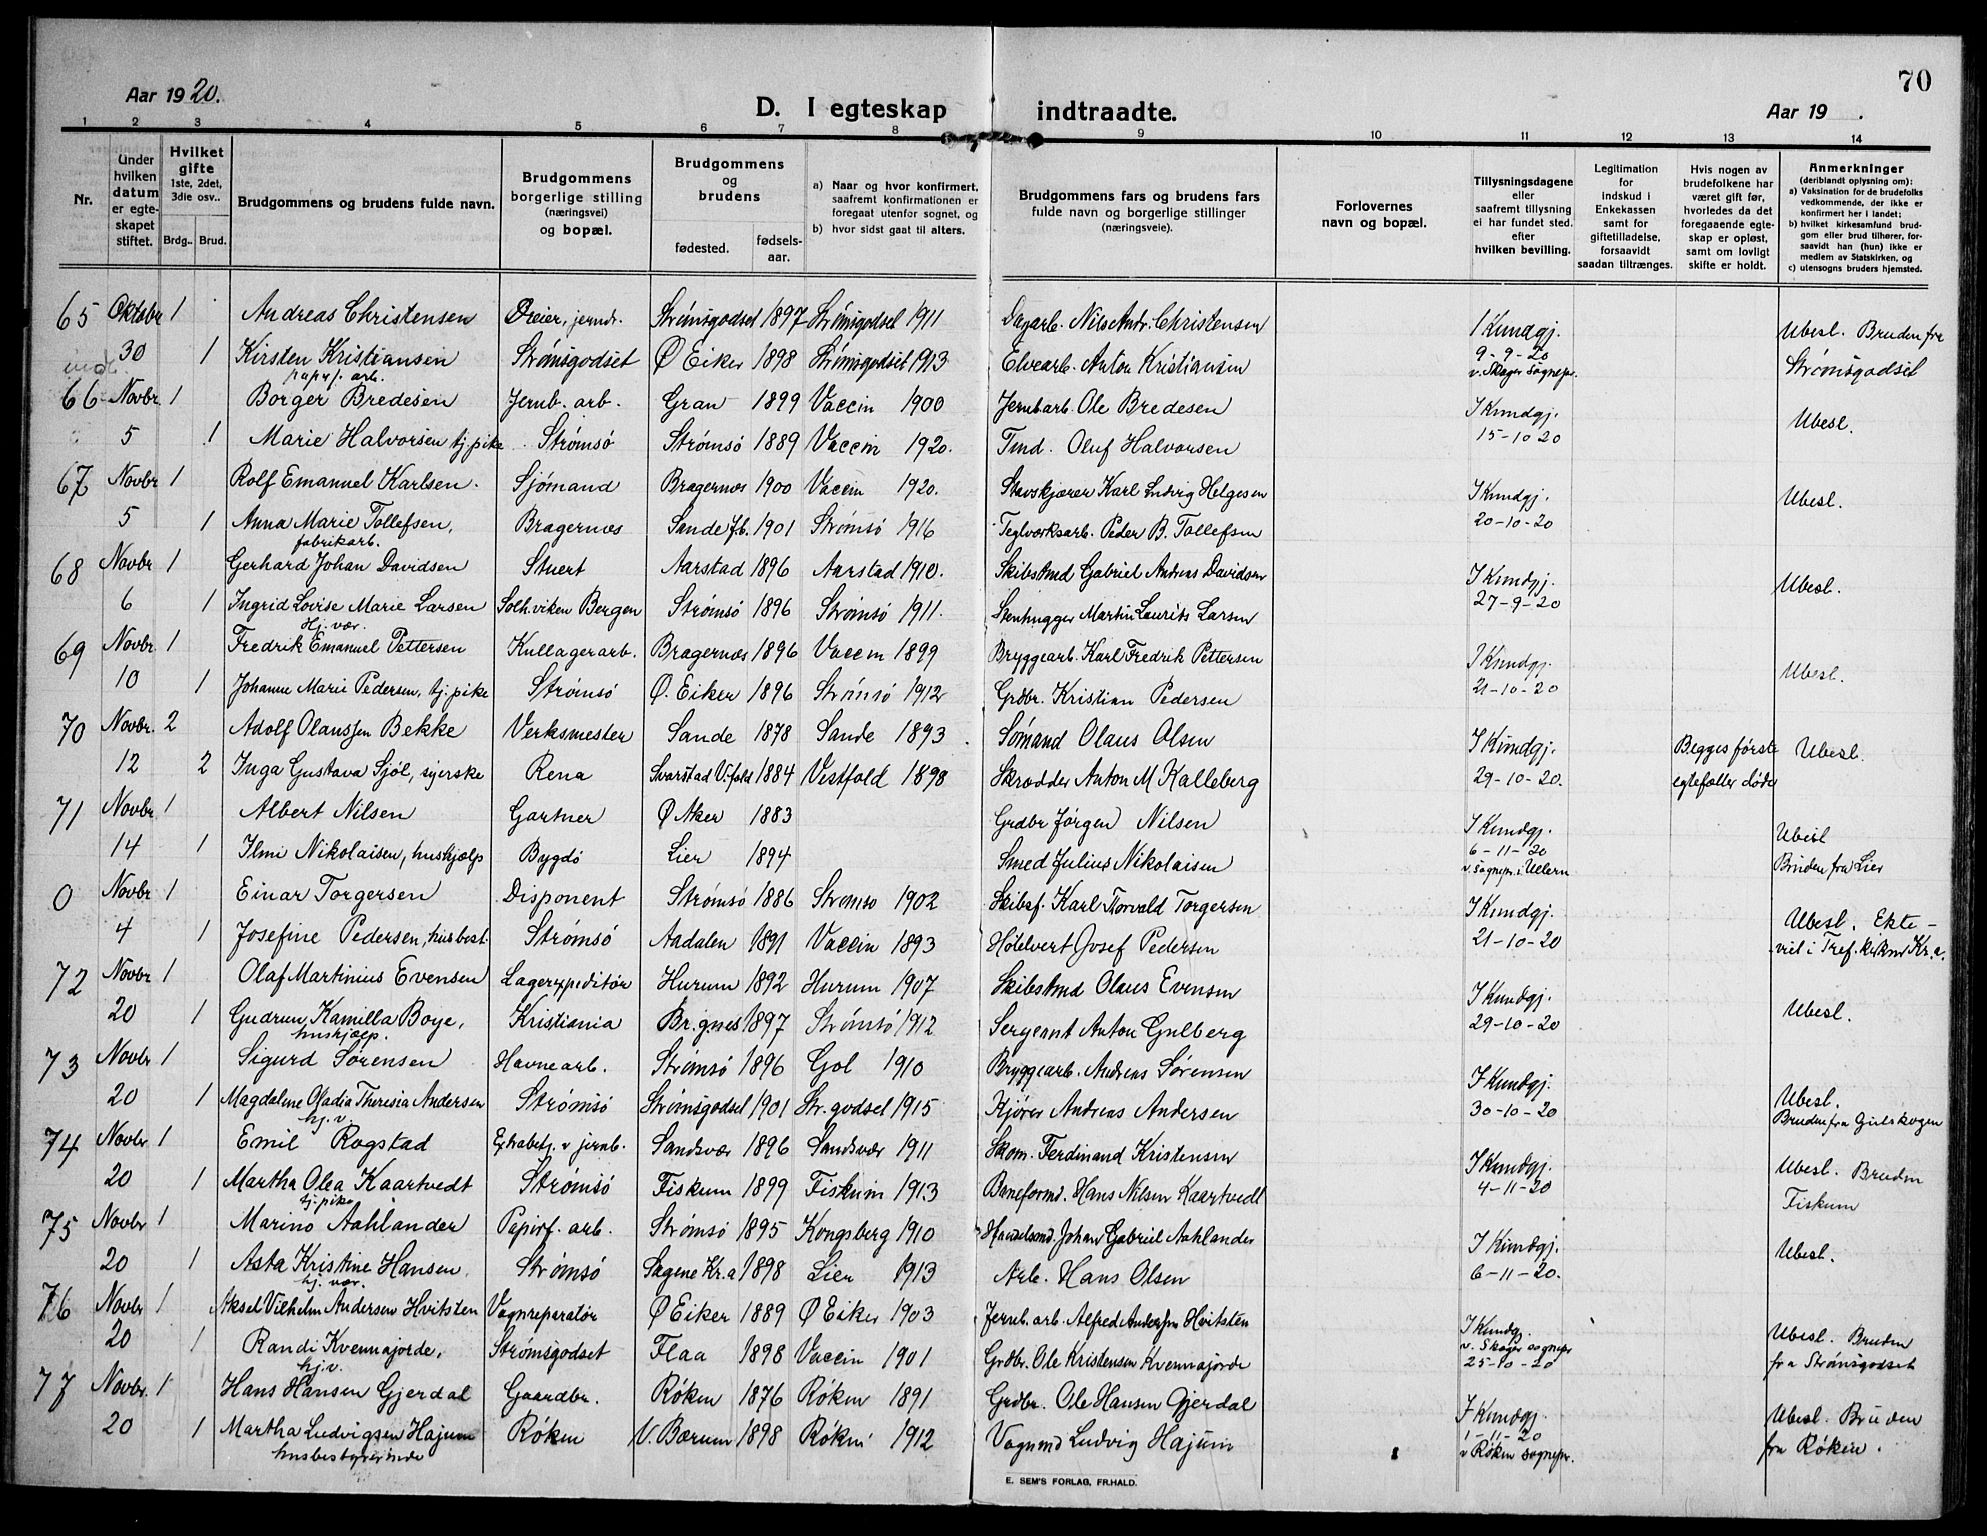 70
Aar 1920.
D. I egteskap indtraadte.
Aar 19 .
1 2 3 4 5 6 7 8 9 10 11 12 13 14
Nr.
Under hvilken datum er egteskapet stiftet.
Hvilket gifte 1ste, 2det, 3die osv..
Brdg.. Brud.
Brudgommens og brudens fulde navn.
Brudgommens borgerlige stilling (næringsvei) og bopæl.
Brudgommens og brudens
fødested. fødselsaar.
a) Naar og hvor konfirmert, saafremt konfirmationen er foregaat utenfor sognet, og
b) hvor sidst gaat til alters.
Brudgommens fars og brudens fars fulde navn og borgerlige stillinger (næringsveie).
Forlovernes navn og bopæl.
Tillysningsdagene eller saafremt tillysning ei har fundet sted. efter hvilken bevilling.
Legitimation for Indskud i Enkekassen samt for giftetilladelse, forsaavidt saadan tiltrænges.
Hvis nogen av brudefolkene har været gift før, hvorledes da det foregaaende egteskap er opløst, samt om lovligt skifte er holdt.
Anmerkninger (deriblandt oplysning om):
a) Vaksination for de brudefolks vedkommende, der ikke er konfirmert her i landet;
b) hvilket kirkesamfund brudgom eller brud tilhører, forsaavidt han (hun) ikke er medlem av Statskirken, og
c) utensogns bruders hjemsted.
65 Oktobr 1 Andreas Christensen Dreier, jerndr. Strömsgodset 1897 Strömsgodset 1911 Dagarb. Nils Andr. Christensen I Kundgj. Ubesl. Bruden fra
30 1 Kirsten Kristiansen Strömsgodset Ø Eiker 1898 Strömsgodset 1913 Elvearb. Anton Kristiansen 9-9-20 Strömsgodset
papirf. arb. v. Skoger sognepr.
66 Novbr. 1 Borger Bredesen Jernb. arb. Gran 1899 Vaccin 1900 Jernbarb. Ole Bredesen I Kundgj. Ubesl.
5 1 Marie Halvorsen tj. pike Strømsö Strømsö 1889 Vaccin 1920. Tmd. Oluf Halvorsen 15-10-20
67 Novbr 1 Rolf Emanuel Karlsen. Sjömand Bragernæs 1900 Vaccin 1920. Stavskjærer Karl Ludvig Helgesen I Kundgj. Ubesl.
5 1 Anna Marie Tollefsen, Bragernæs Sande Jb. 1901 Strømsö 1916 Teglværksarb. Peder B. Tollefsen 20-10-20
fabrikarb.
68 Novbr 1 Gerhard Johan Davidsen Stuert Aarstad 1896 Aarstad 1910. Skibstmd Gabriel Andreas Davidsen I Kundgj. Ubesl.
6 1 Ingrid Lovise Marie Larsen Solh.viken Bergen Strømsö 1896 Strømsö 1911. Stenhugger Martin Laurits Larsen 27-9-20
Hj. vær.
69 Novbr. 1 Fredrik Emanuel Pettersen Kullagerarb. Bragernæs 1896 Vaccin 1899 Bryggearb. Karl Fredrik Pettersen I Kundgj. Ubesl.
10 1 Johanne Marie Pedersen, tj. pike Strømsö Ø. Eiker 1896 Strømsö 1912 Grdbr. Kristian Pedersen 21-10-20
70 Novbr. 2 Adolf Olaussen Bekke Verksmester Sande 1878 Sande 1893. Sømand Olaus Olsen I Kundgj. Begges første Ubesl.
12 2 Inga Gustava Sjöl, syerske Rena Svarstad V.fold 1884 Vestfold 1898 Skrædder Anton M Kalleberg 29-10-20. egtefæller døde
71 Novbr 1 Albert Nilsen Gartner Ø Aker 1883 Grdbr Jørgen Nilsen I Kundgj. Ubesl
14 1 Ilmi Nikolaisen, huskjælp Bygdö Lier 1894 Smed Julius Nikolaisen 6-11-20 Bruden fra Lier
v. sognepr. i Ullern
0 Novbr 1 Einar Torgersen Disponent Strømsö 1886 Strømsø 1902 Skibsf. Karl Torvald Torgersen I Kundgj. Ubesl. Ekte-
4 1 Josefine Pedersen, husbest. Strømsö Aadalen 1891 Vaccin 1893 Hotelvert Josef Pedersen 21-10-20 viet i Tref. kirken Kr.a.
72 Novbr 1 Olaf Martinius Evensen Lagerexpeditör Hurum 1892 Hurum 1907 Skibstmd Olaus Evensen I Kundgj. Ubesl.
20 1 Gudrun Kamilla Boye, Kristiania Br.gnes 1897 Strømsö 1912 Sergeant Anton Gulberg 29-10-20
huskjælp.
73 Novbr 1 Sigurd Sørensen Havnearb. Strømsö 1896 Gol 1910 Bryggearb. Andreas Sørensen I Kundgj. Ubesl.
20 1 Magdalene Oladia Theresia Andersen Strømsö Strömsgodset 1901 Str.godset 1915 Kjörer Andreas Andersen 30-10-20 Bruden fra Gulskogen
hj. v.
74 Novbr 1 Emil Rogstad Extrabetj. v jernb. Sandsvær 1896 Sandsvær 1911 Skom. Ferdinand Kristensen I Kundgj. Ubesl. Bruden
20 1 Martha Olea Kaartvedt Strømsö Fiskum 1899 Fiskum 1913 Baneformd. Hans Nilsen Kaartvedt 4-11-20 Fiskum
tj. pike
75 Novbr 1 Marino Aahlander Papirf. arb. Strømsö 1895 Kongsberg 1910 Handelsmd. Johan Gabriel Aahlander I Kundgj. Ubesl.
20 1 Asta Kristine Hansen. Strømsö Sagene Kr.a 1898 Lier 1913 Arb. Hans Olsen 6-11-20.
hj. vær.
76 Novbr 1 Aksel Vilhelm Andersen Hvitsten Vognreparatör Ø Eiker 1889 Ø Eiker 1903 Jernb. arb. Alfred Andersen Hvitsten I Kundgj. Ubesl. Bruden
20 1 Randi Kvennajorde, Strömsgodset Flaa 1898 Vaccin 1901 Grdbr. Ole Kristensen Kvennajorde v. Skoger sognepr 25-10-20 fra Strömsgodset
hj. v.
77 Novbr. 1 Hans Hansen Gjerdal Gaardbr. Røken 1876 Røken 1891 Grdbr. Ole Hansen Gjerdal I Kundgj. Ubesl. Bruden
20 1 Martha Ludvigsen Hajum Røken V. Bærum 1898 Røken 1912 Vognmd Ludvig Hajum 1-11-20 fra Røken.
husbestyrerinde v Røken sognepr.
E. SEM'S FORLAG, FR.HALD.